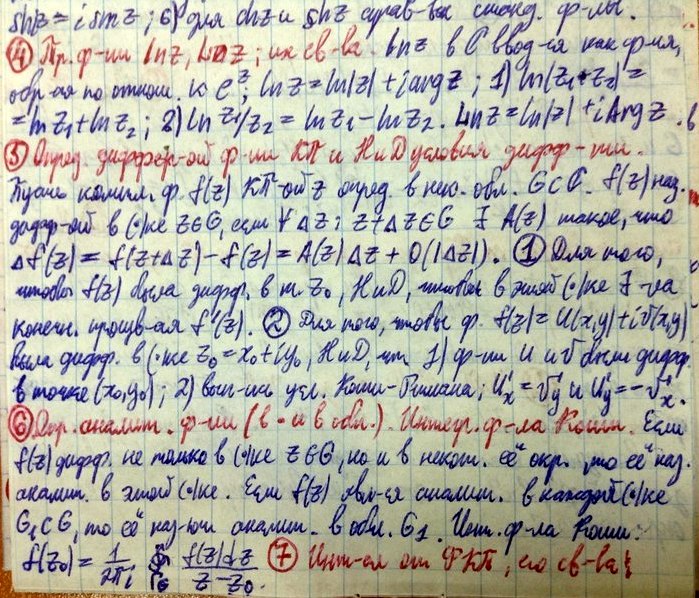 shz = i sin z; 6) для chz и shz справ-вы станд. ф-лы.
④ Пр. ф-ии lnz, Lnz; их св-ва. Lnz в C ввод-я как ф-ия,
обр-ая по отнош. к e^z; lnz = ln|z| + i argz; 1) ln(z₁·z₂) =
= ln z₁ + ln z₂; 2) ln z₁/z₂ = ln z₁ − ln z₂. Lnz = ln|z| + i Argz.
⑤ Опред. диффер-ой ф-ии КП и НиД условия дифф-ти.
Пусть компл. ф. f(z) КП-ой z опред. в нек. обл. G⊂C. f(z) наз.
дифф-ой в (·)ке z∈G, если ∀ Δz: z+Δz∈G ∃ A(z) такое, что
Δf(z) = f(z+Δz) − f(z) = A(z)Δz + O(|Δz|). ① Для того,
чтобы f(z) была дифф. в т. z₀, НиД, чтобы в этой (·)ке ∃-ла
конечн. произв-ая f'(z). ② Для того, чтобы ф. f(z) = U(x,y) + iV(x,y)
была дифф. в (·)ке z₀ = x₀ + iy₀, НиД, чт. 1) ф-ии U и V были дифф.
в точке (x₀,y₀); 2) вып-сь усл. Коши-Римана; U'x = V'y и U'y = −V'x.
⑥ Опр. аналит. ф-ии (в · и в обл.). Интегр. ф-ла Коши. Если
f(z) дифф. не только в (·)ке z∈G, но и в некот. её окр., то её наз.
аналит. в этой (·)ке. Если f(z) явл-ся аналит. в каждой (·)ке
G₁⊂G, то её наз-ют аналит. в обл. G₁. Инт. ф-ла Коши:
f(z₀) = 1/2πi ∮ f(z)dz / z − z₀. ⑦ Инт-ал от ФКП, его св-ва